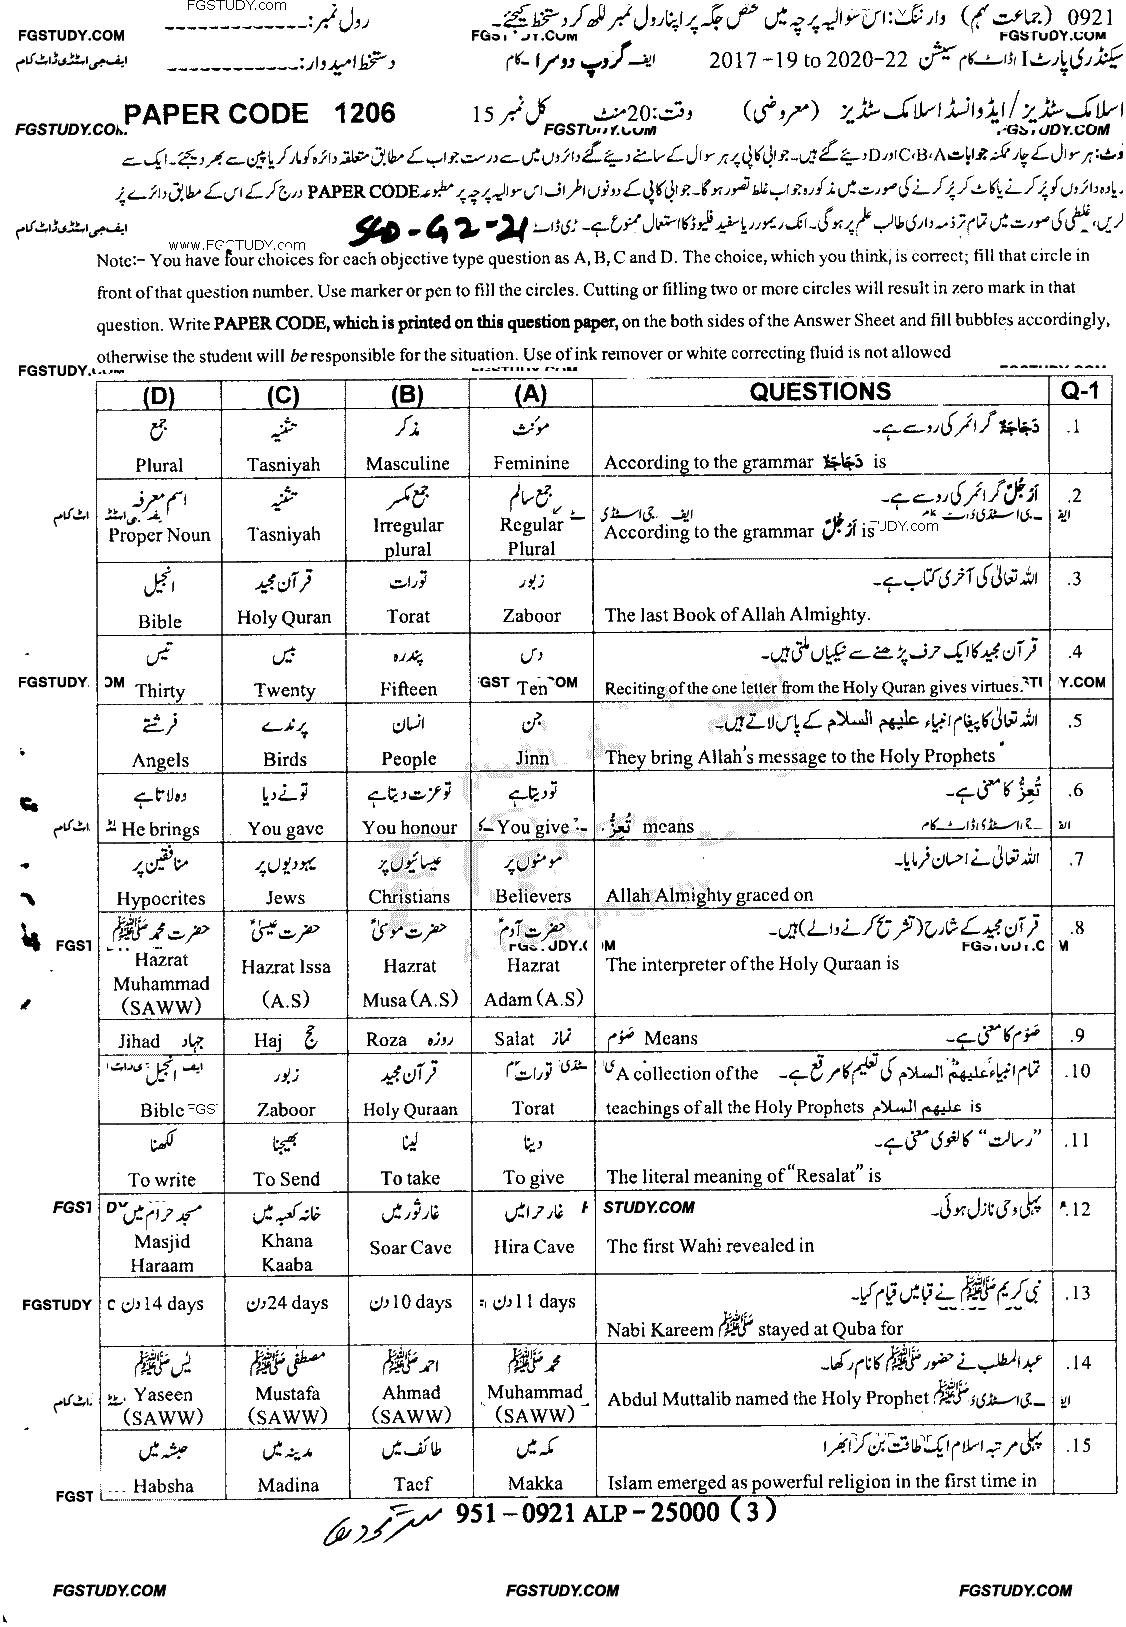 FGSTUDY.COM
0921 (جماعت نہم) وارننگ: اس سوالیہ پرچہ میں مختص جگہ پر اپنا رول نمبر لکھ کر دستخط کیجئے۔ رول نمبر: _ _ _ _ _ _ _ _ _ _ _ _
FGSTUDY.COM FGSTUDY.COM
سیکنڈری پارٹ I سیشن 2017-19 to 2020-22 گروپ دوسرا دستخط امیدوار: _ _ _ _ _ _ _ _ _ _ _ ایف جی اسٹڈی ڈاٹ کام
اسلامک سٹڈیز / ایڈوانسڈ اسلامک سٹڈیز (معروضی) وقت: 20 منٹ کل نمبر 15 PAPER CODE 1206
FGSTUDY.COM FGSTUDY.COM FGSTUDY.COM
نوٹ: ہر سوال کے چار ممکنہ جوابات A، B، C اور D دیئے گئے ہیں۔ جوابی کاپی پر ہر سوال کے سامنے دیئے گئے دائروں میں سے درست جواب کے مطابق متعلقہ دائرہ کو مارکر یا پین سے بھر دیجئے۔ ایک سے
زیادہ دائروں کو پُر کرنے یا کاٹ کر پُر کرنے کی صورت میں مذکورہ جواب غلط تصور ہو گا۔ جوابی کاپی کے دونوں اطراف اس سوالیہ پرچہ پر مطبوعہ PAPER CODE درج کر کے اس کے مطابق دائرے پُر
کریں، غلطی کی صورت میں تمام تر ذمہ داری طالب علم پر ہو گی۔ انک ریموور یا سفید فلیوڈ کا استعمال ممنوع ہے۔ ایف جی اسٹڈی ڈاٹ کام
www.FGSTUDY.com
Note:- You have four choices for each objective type question as A, B, C and D. The choice, which you think, is correct; fill that circle in
front of that question number. Use marker or pen to fill the circles. Cutting or filling two or more circles will result in zero mark in that
question. Write PAPER CODE, which is printed on this question paper, on the both sides of the Answer Sheet and fill bubbles accordingly,
otherwise the student will be responsible for the situation. Use of ink remover or white correcting fluid is not allowed
(D) (C) (B) (A) QUESTIONS Q-1
جمع تثنیہ مذکر مونث دَجَاجَةٌ گرائمر کی رو سے ہے۔ .1
Plural Tasniyah Masculine Feminine According to the grammar دَجَاجَةٌ is
اسم معرفہ تثنیہ جمع مکسر جمع سالم اَرْجُلٌ گرائمر کی رو سے ہے۔ .2
Proper Noun Tasniyah Irregular plural Regular Plural According to the grammar اَرْجُلٌ is
انجیل قرآن مجید تورات زبور اللہ تعالیٰ کی آخری کتاب ہے۔ .3
Bible Holy Quran Torat Zaboor The last Book of Allah Almighty.
تیس بیس پندرہ دس قرآن مجید کا ایک حرف پڑھنے سے نیکیاں ملتی ہیں۔ .4
Thirty Twenty Fifteen Ten Reciting of the one letter from the Holy Quran gives virtues.
فرشتے پرندے انسان جن اللہ تعالیٰ کا پیغام انبیاء علیہم السلام کے پاس لاتے ہیں۔ .5
Angels Birds People Jinn They bring Allah's message to the Holy Prophets
وہ لاتا ہے تو نے دیا تو عزت دیتا ہے تو دیتا ہے تُعِزُّ کا معنی ہے۔ .6
He brings You gave You honour You give تُعِزُّ means
منافقین پر یہودیوں پر عیسائیوں پر مومنوں پر اللہ تعالیٰ نے احسان فرمایا۔ .7
Hypocrites Jews Christians Believers Allah Almighty graced on
حضرت محمد ﷺ حضرت عیسیٰؑ حضرت موسیٰؑ حضرت آدمؑ قرآن مجید کے شارح (تشریح کرنے والے) ہیں۔ .8
Hazrat Muhammad (SAWW) Hazrat Issa (A.S) Hazrat Musa (A.S) Hazrat Adam (A.S) The interpreter of the Holy Quraan is
Jihad جہاد Haj حج Roza روزہ Salat نماز صَوْم Means صَوْم کا معنی ہے۔ .9
انجیل زبور قرآن مجید تورات A collection of the تمام انبیاء علیہم السلام کی تعلیم کا مرقع ہے۔ .10
Bible Zaboor Holy Quraan Torat teachings of all the Holy Prophets علیہم السلام is
لکھنا بھیجنا لینا دینا "رسالت" کا لغوی معنی ہے۔ .11
To write To Send To take To give The literal meaning of "Resalat" is
مسجد حرام میں خانہ کعبہ میں غار ثور میں غار حرا میں پہلی وحی نازل ہوئی۔ .12
Masjid Haraam Khana Kaaba Soar Cave Hira Cave The first Wahi revealed in
14 days دن 24 days دن 10 days دن 11 days دن نبی کریم ﷺ نے قبا میں قیام کیا۔ .13
Nabi Kareem ﷺ stayed at Quba for
یٰس ﷺ مصطفی ﷺ احمد ﷺ محمد ﷺ عبدالمطلب نے حضور ﷺ کا نام رکھا۔ .14
Yaseen (SAWW) Mustafa (SAWW) Ahmad (SAWW) Muhammad (SAWW) Abdul Muttalib named the Holy Prophet ﷺ
حبشہ میں مدینہ میں طائف میں مکہ میں پہلی مرتبہ اسلام ایک طاقت بن کر ابھرا .15
Habsha Madina Taef Makka Islam emerged as powerful religion in the first time in
951-0921 ALP-25000 (3)
FGSTUDY.COM FGSTUDY.COM FGSTUDY.COM